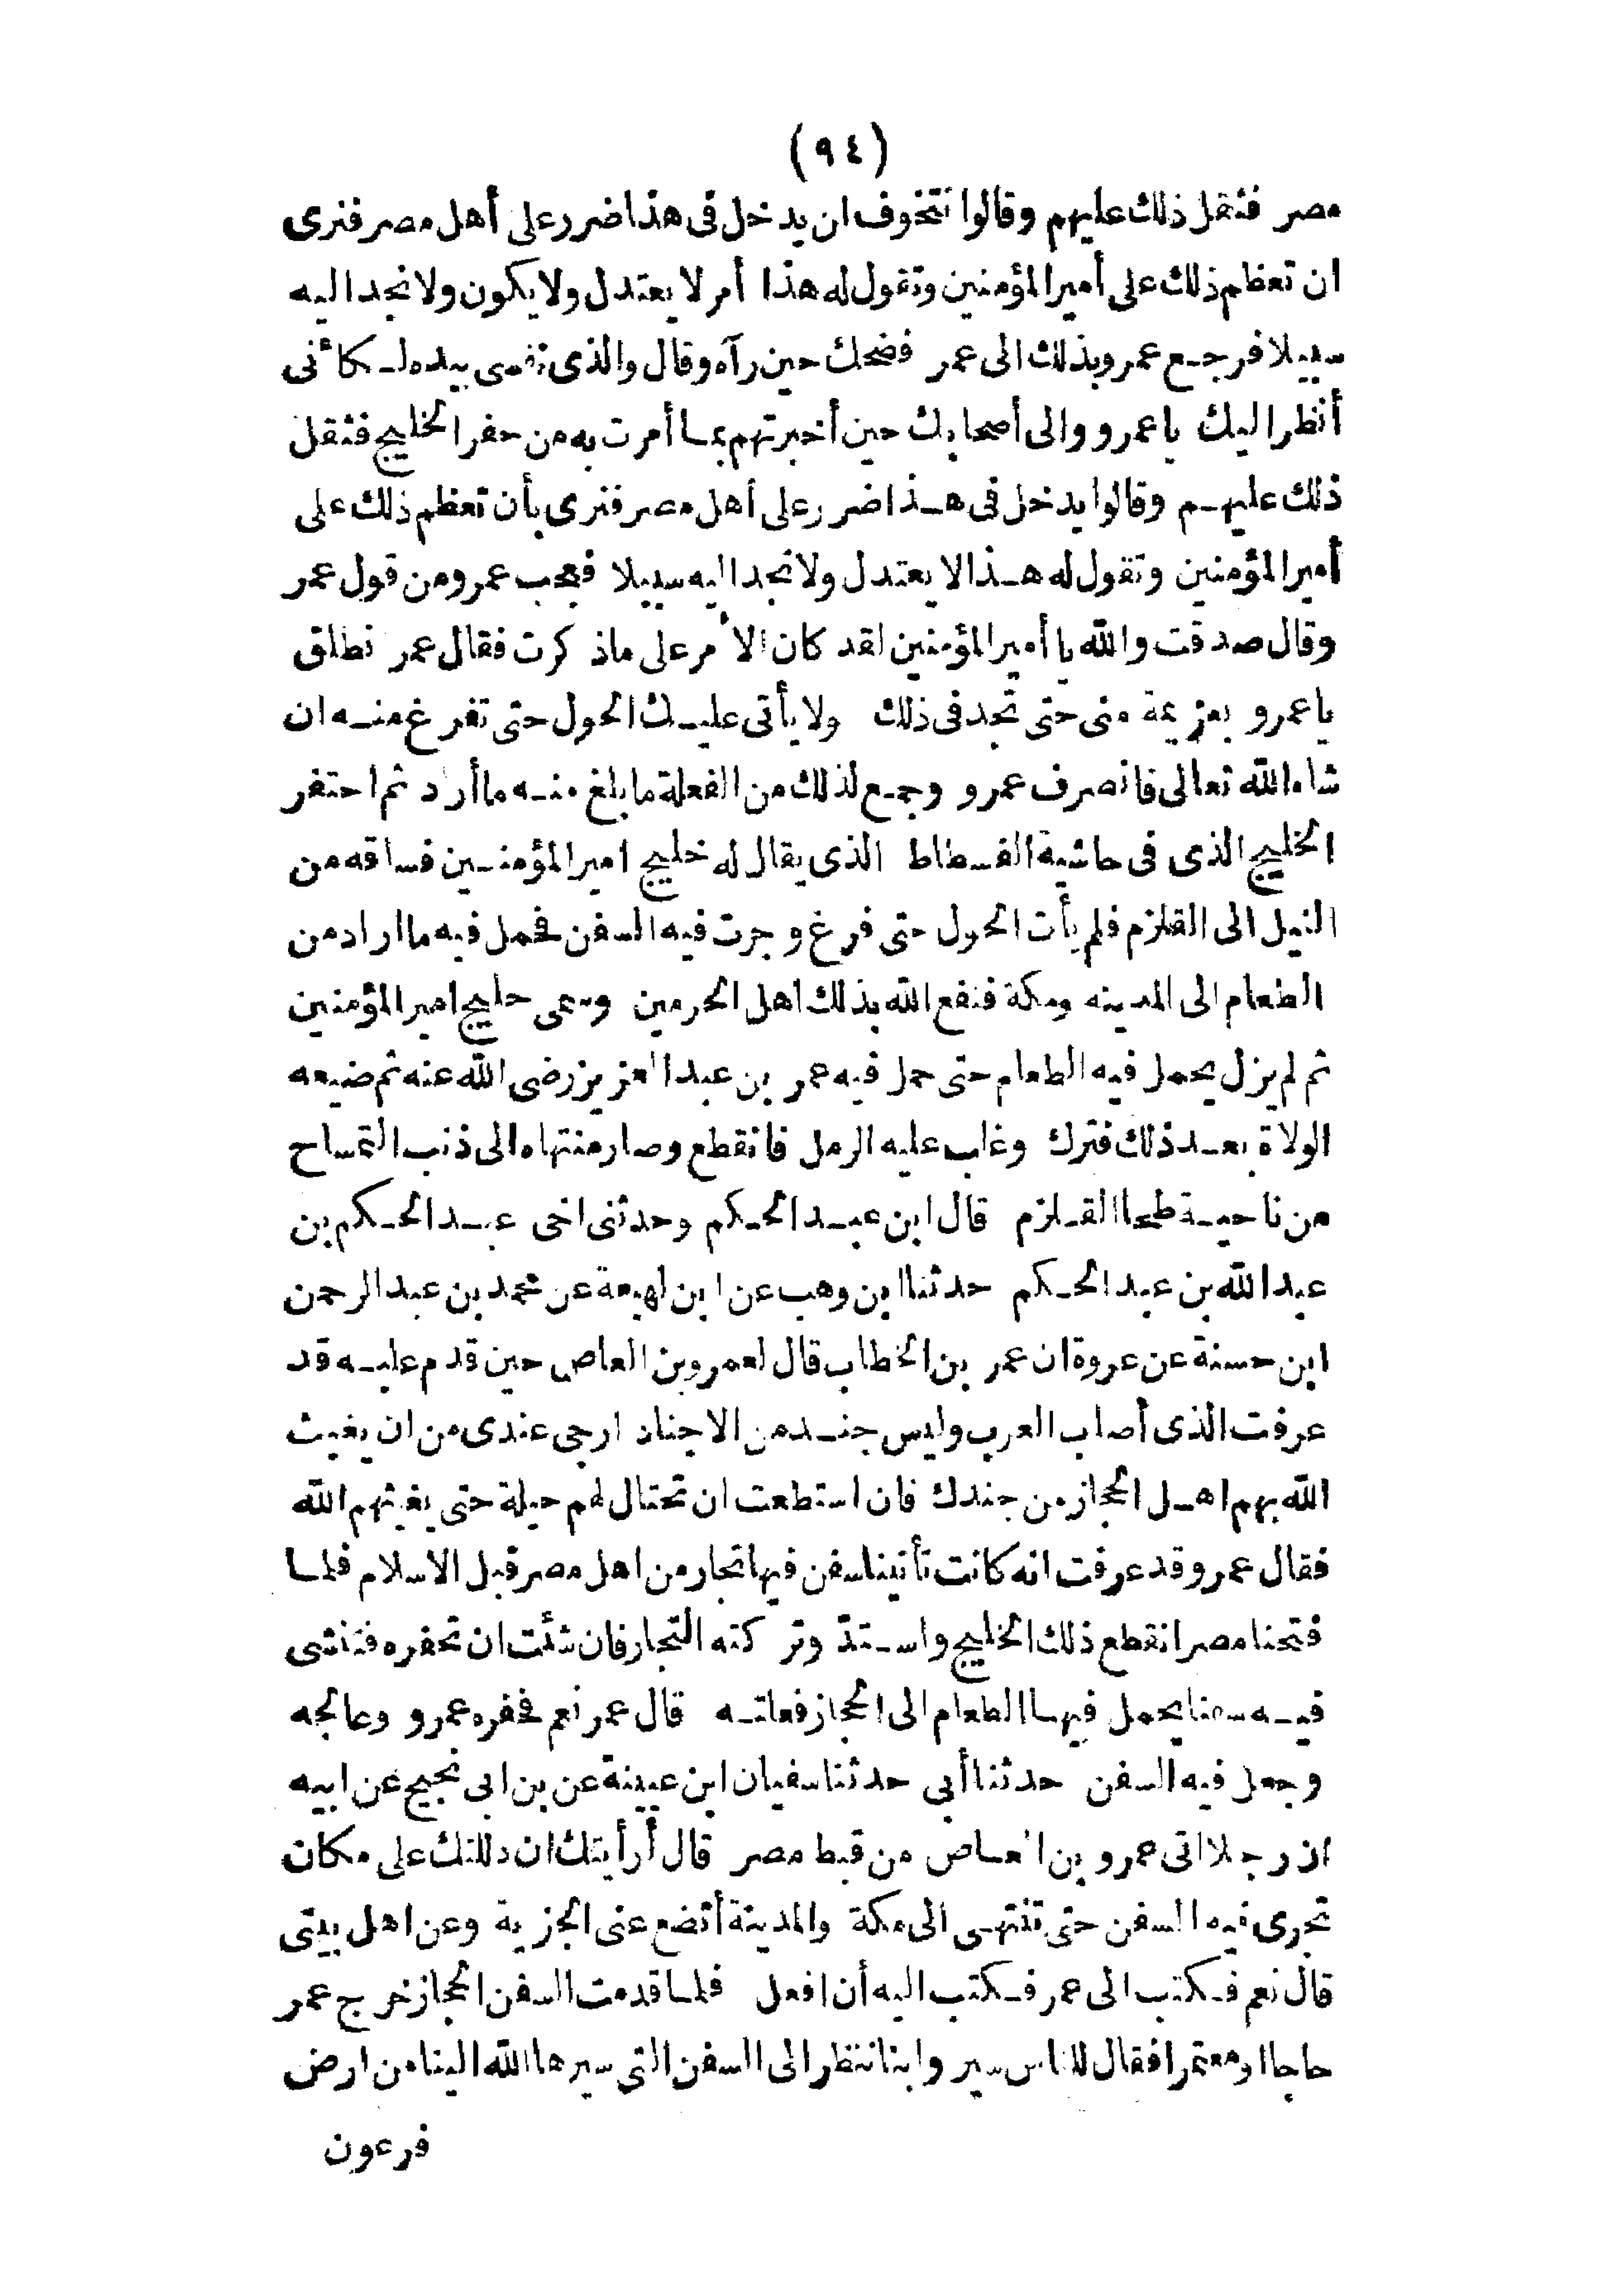 (٩٤)
مصر فثقل ذلك عليهم وقالوا نتخوف ان يدخل فى هذا ضرر على أهل مصر فنرى
ان تعظم ذلك على أمير المؤمنين وتقول له هذا أمر لا يعتدل ولا يكون ولا نجد اليه
سبيلا فرجع عمرو بذلك الى عمر فضحك حين رآه وقال والذى نفسى بيده لكأنى
أنظر اليك يا عمرو والى أصحابك حين أخبرتهم بما أمرت به من حفر الخليج فثقل
ذلك عليهم وقالوا يدخل فى هذا ضرر على أهل مصر فنرى بأن تعظم ذلك على
أمير المؤمنين وتقول له هذا لا يعتدل ولا نجد اليه سبيلا فعجب عمرو من قول عمر
وقال صدقت والله يا أمير المؤمنين لقد كان الأمر على ما ذكرت فقال عمر نطلق
يا عمرو بعزيمة منى حتى تجد فى ذلك ولا يأتى عليك الحول حتى تفرغ منه ان
شاء الله تعالى فانصرف عمرو وجمع لذلك من الفعلة ما بلغ منه ما أراد ثم احتفر
الخليج الذى فى حاشية الفسطاط الذى يقال له خليج امير المؤمنين فساقه من
النيل الى القلزم فلم يأت الحول حتى فرغ وجرت فيه السفن فحمل فيه ما اراد من
الطعام الى المدينه ومكة فنفع الله بذلك اهل الحرمين وسمى خليج امير المؤمنين
ثم لم يزل يحمل فيه الطعام حتى حمل فيه عمر بن عبد العزيز رضى الله عنه ثم ضيعه
الولاة بعد ذلك فترك وغاب عليه الرمل فانقطع وصار منتهاه الى ذنب التمساح
من ناحية طحا القلزم قال ابن عبد الحكم وحدثنى اخى عبد الحكم بن
عبد الله بن عبد الحكم حدثنا ابن وهب عن ابن لهيعة عن محمد بن عبد الرحمن
ابن حسنة عن عروة ان عمر بن الخطاب قال لعمرو بن العاص حين قدم عليه قد
عرفت الذى أصاب العرب وليس جند من الاجناد ارجى عندى من ان يغيث
الله بهم اهل الحجاز من جندك فان استطعت ان تحتال لهم حيلة حتى يغيثهم الله
فقال عمرو قد عرفت انه كانت تأتينا سفن فيها تجار من اهل مصر قبل الاسلام فلما
فتحنا مصر انقطع ذلك الخليج واستدّ وتركته التجار فان شئت ان تحفره فتنشى
فيه سفنا يحمل فيها الطعام الى الحجاز فعلته قال عمر نعم فحفره عمرو وعالجه
وجعل فيه السفن حدثنا أبى حدثنا سفيان ابن عيينة عن بن ابى نجيح عن ابيه
ان رجلا اتى عمرو بن العاص من قبط مصر قال أرأيتك ان دللتك على مكان
تجرى فيه السفن حتى تنتهى الى مكة والمدينة أتضع عنى الجزية وعن اهل بيتى
قال نعم فكتب الى عمر فكتب اليه أن افعل فلما قدمت السفن الحجاز خرج عمر
حاجا او معتمرا فقال للناس سيروا بنا ننظر الى السفن التى سيرها الله الينا من ارض
فرعون